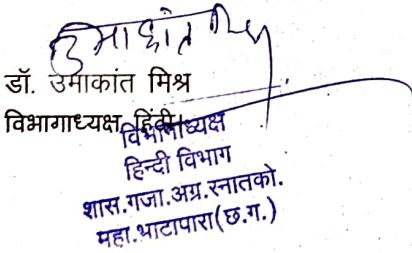 उमाकांत मिश्र
डॉ. उमाकांत मिश्र
विभागाध्यक्ष हिंदी
विभागाध्यक्ष
हिन्दी विभाग
शास.गजा.अग्र.स्नातको.
महा.भाटापारा(छ.ग.)